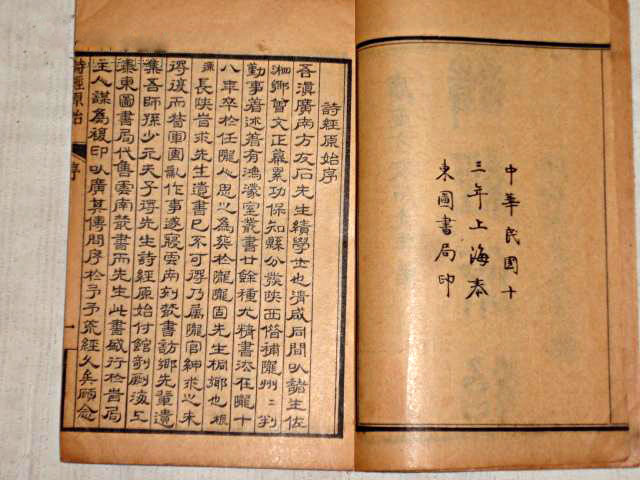 中華民國十
三年上海泰
東圖書局印
詩經原始序
吾滇廣南方友石先生績學士也清咸同間㠯諸生佐
湘鄉曾文正幕累功保知縣分發陝西借補隴州二判
勤事著述著有鴻濛室叢書廿餘種尤精書法在隴十
八年卒於任隴人思之為葬於隴隴固先生桐鄉也根
源長陝嘗求先生遺書已不可得乃屬隴官紳求之未
得復而督軍團亂作事遂寢雲南刻叢書訪鄉先輩遺
集吾師孫少元夫子得先生詩經原始付館剞劂海上
泰東圖書局代售雲南叢書而先生此書盛行於旹局
主人謀為複印㠯廣其傳問序於予予荒經久矣顧念
詩經原始
序
一